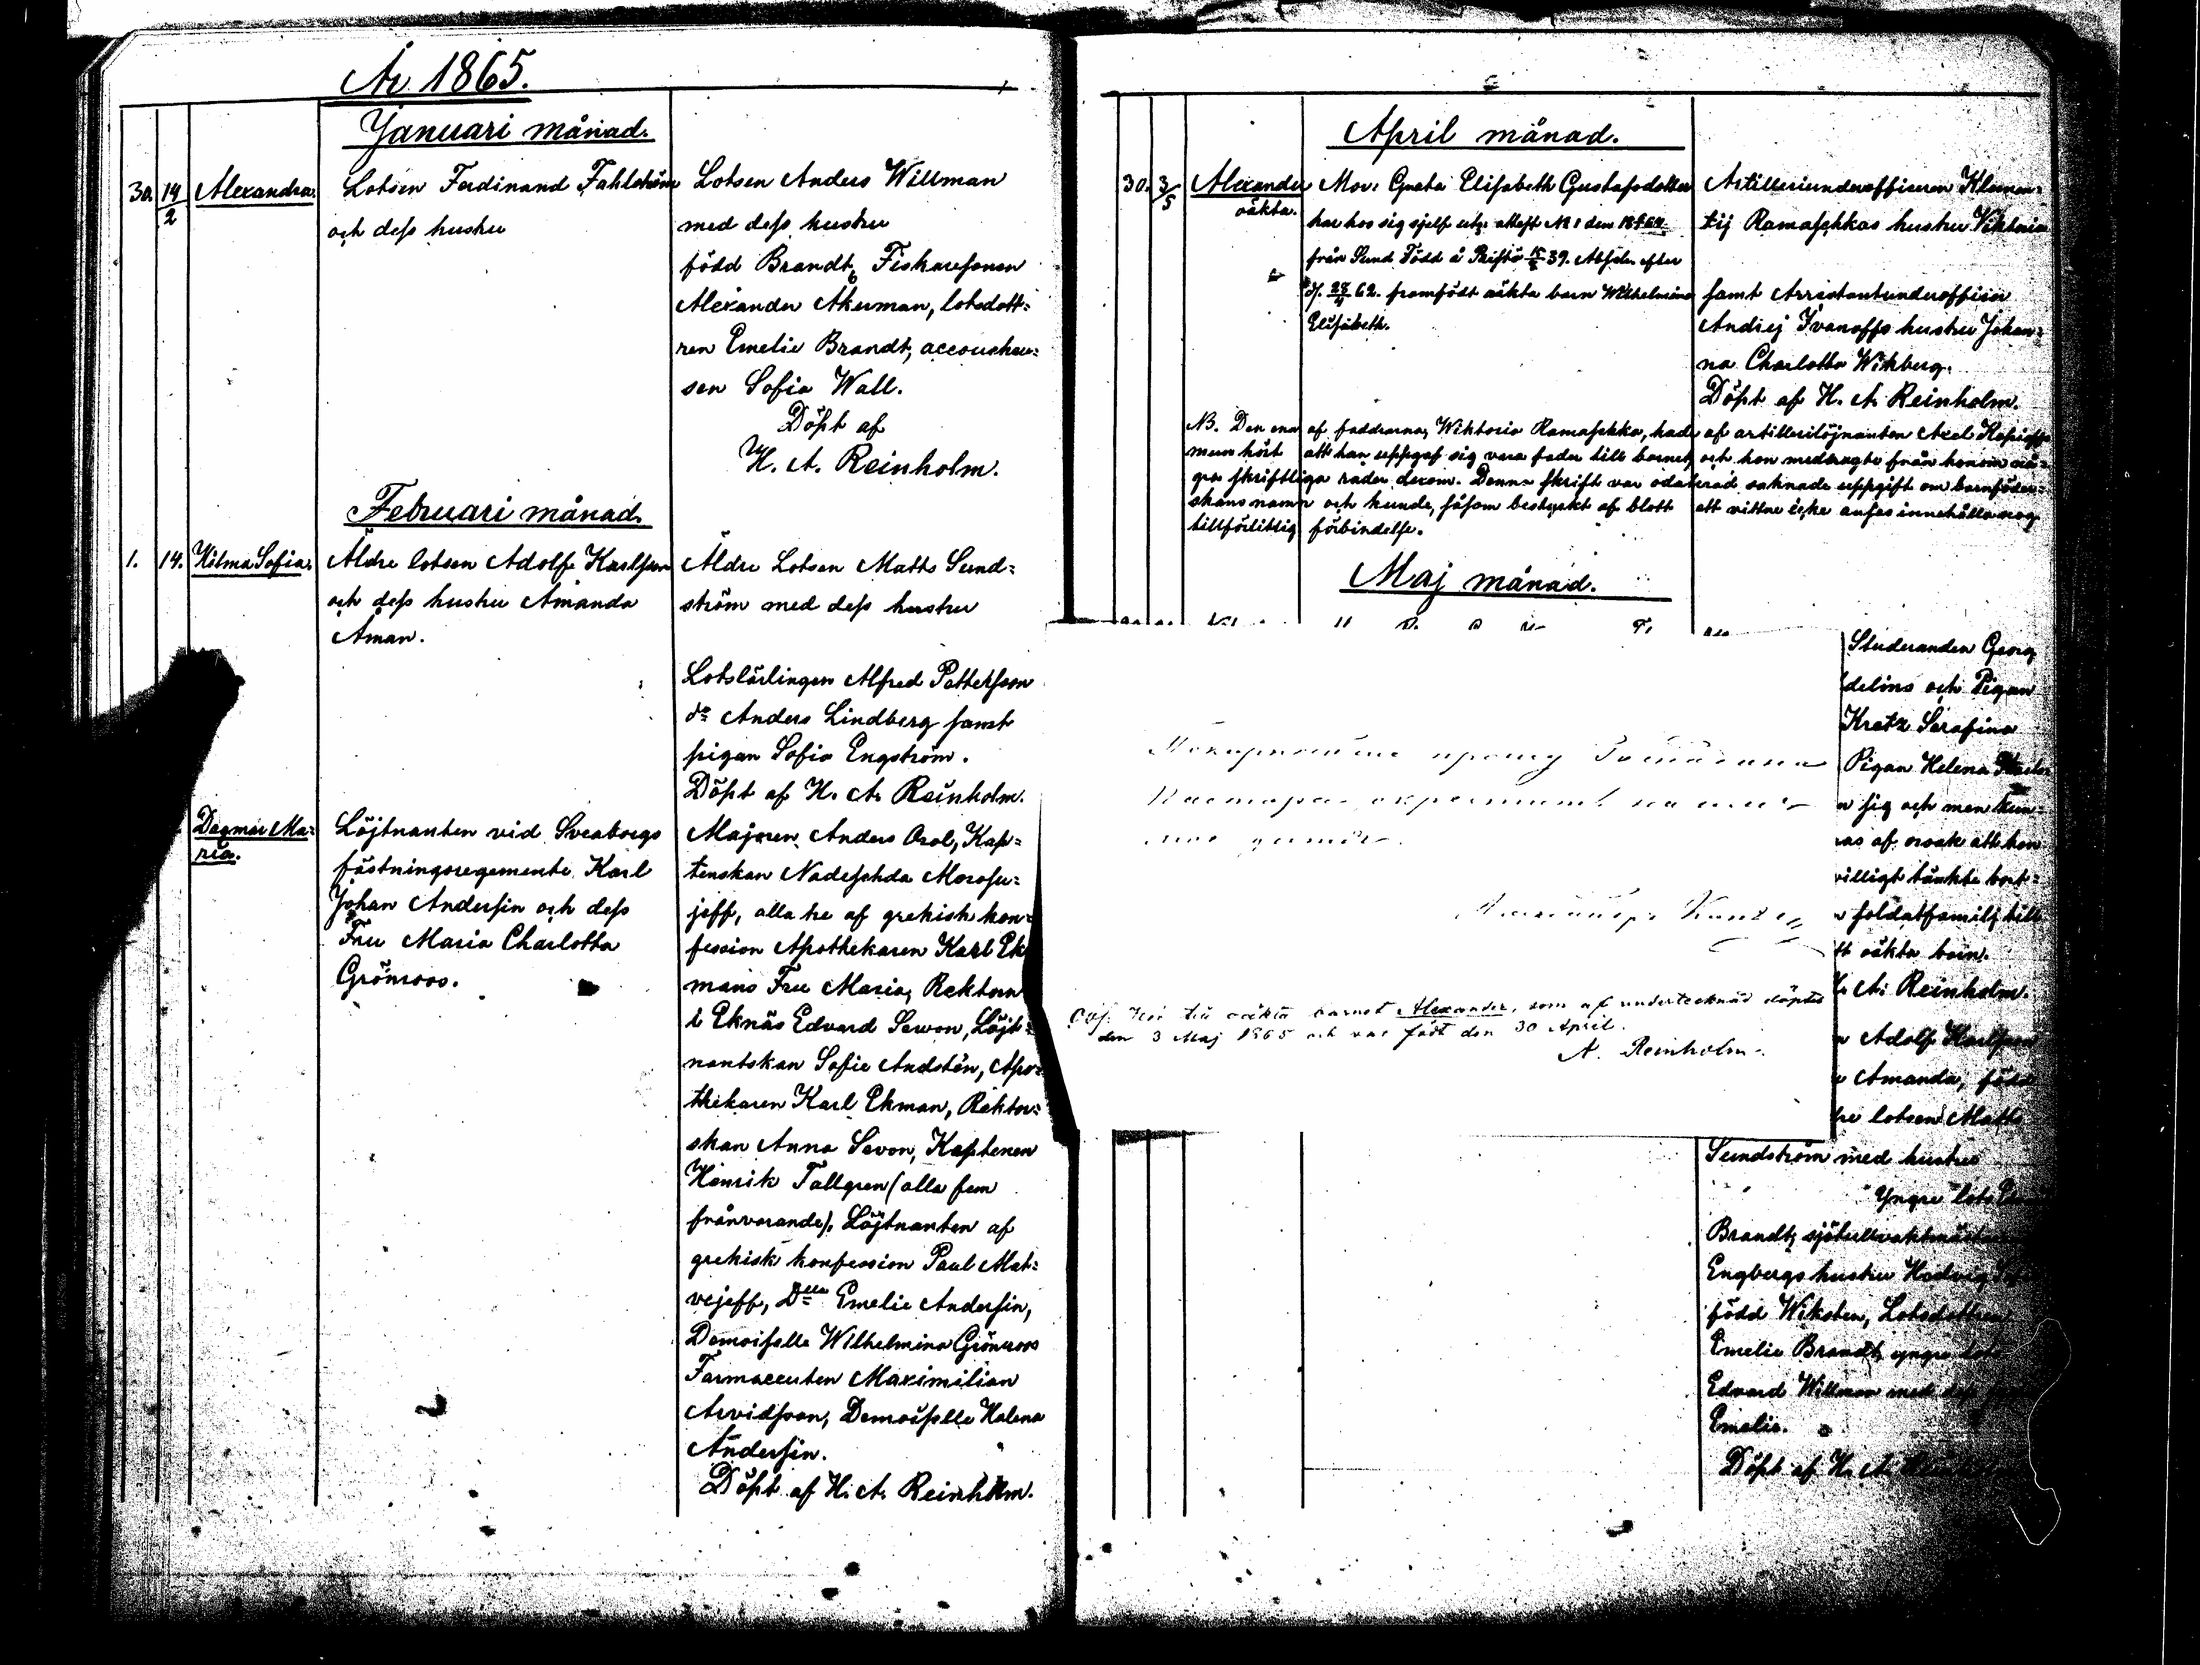 År 1865.
Januari månad.
30. 14/2 Alexandra.
Lotsen Ferdinand Fahlström
och dess hustru
Lotsen Anders Willman
med dess hustru
född Brandt, Fiskaresonen
Alexander Åkerman, lotsdott-
ren Emelie Brandt, accoucheu-
sen Sofia Wall.
Döpt af
H. A. Reinholm.
Februari månad.
1. 14. Hilma Sofia.
Äldre lotsen Adolf Karlsson
och dess hustru Amanda
Åman.
Äldre Lotsen Matts Sund-
ström med dess hustru
Lotslärlingen Alfred Pettersson
d:o Anders Lindberg samt
pigan Sofia Engström.
Döpt af H. A. Reinholm.
Dagmar Ma-
ria.
Löjtnanten vid Sveaborgs
fästningsregemente Karl
Johan Andersin och dess
Fru Maria Charlotta
Grönroos.
Majoren Anders Orol, Kap-
tenskan Nadeschda Morosu-
jeff, alla tre af grekisk kon-
fession Apothekaren Karl Ek
mans Fru Maria, Rektorn
i Eknäs Edvard Sevon, Löjt-
nantskan Sofie Andstén, Apo-
thekaren Karl Ekman, Rektor-
skan Anna Sevon, Kaptenen
Henrik Tallgren (alla fem
frånvarande), Löjtnanten af
grekisk konfession Paul Mat-
vejeff, D:lle Emelie Andersin,
Demoiselle Wilhelmina Grönroos
Farmaceuten Maximilian
Arvidsson, Demoiselle Helena
Andersin.
Döpt af H. A. Reinholm.
April månad.
30. 3/5 Alexander
oäkta.
Mor: Greta Elisabeth Gustafsdotter
har hos sig sjelf attest N:1 den
från Sund Född å Prestö 39. Absolv. efter
62. framfödt oäkta barn Wilhelmina
Elisabeth.
Artilleriunderofficeren Klemen-
tij Ramaschkas hustru Viktoria
samt Arrestantunderofficer
Andrej Ivanoffs hustru Johan-
na Charlotta Wikberg.
Döpt af H. A. Reinholm.
NB. Den ena af faddrarna, Wiktoria Ramaschka, hade af artillerilöjnanten Axel
hört att han uppgaf sig vara fader till barnet, och hon medbragte från honom nå-
gra skriftliga rader derom. Denna skrift var odaterad saknade uppgift om barnföder-
skans namn och kunde, såsom bestyrkt af blott ett vittne icke anses innehålla nog
tillförlitlig förbindelse.
Maj månad.
Studeranden Georg
delins och Pigan
Kretz Serafina
Pigan Helena
sig och men kun-
as af orsak att hon
villigt tänkte bort-
soldatfamilj till
tt oäkta barn.
A. Reinholm.
Adolf Karlsson
Amanda, född
re lotsen Matts
Sundström med hustru
Yngre lots
Brandt, sjötullvaktmäst
Engbergs hustru Hedvig
född Wiksten, Lotsdottren
Emelie Brandt, yngre lots
Edvard Willman med dess
Emelie.
Döpt af H. A.
прошу
окрестить
oäkta barnet Alexander, som af undertecknad döptes
den 3 Maj 1865 och var född den 30 April.
A. Reinholm.